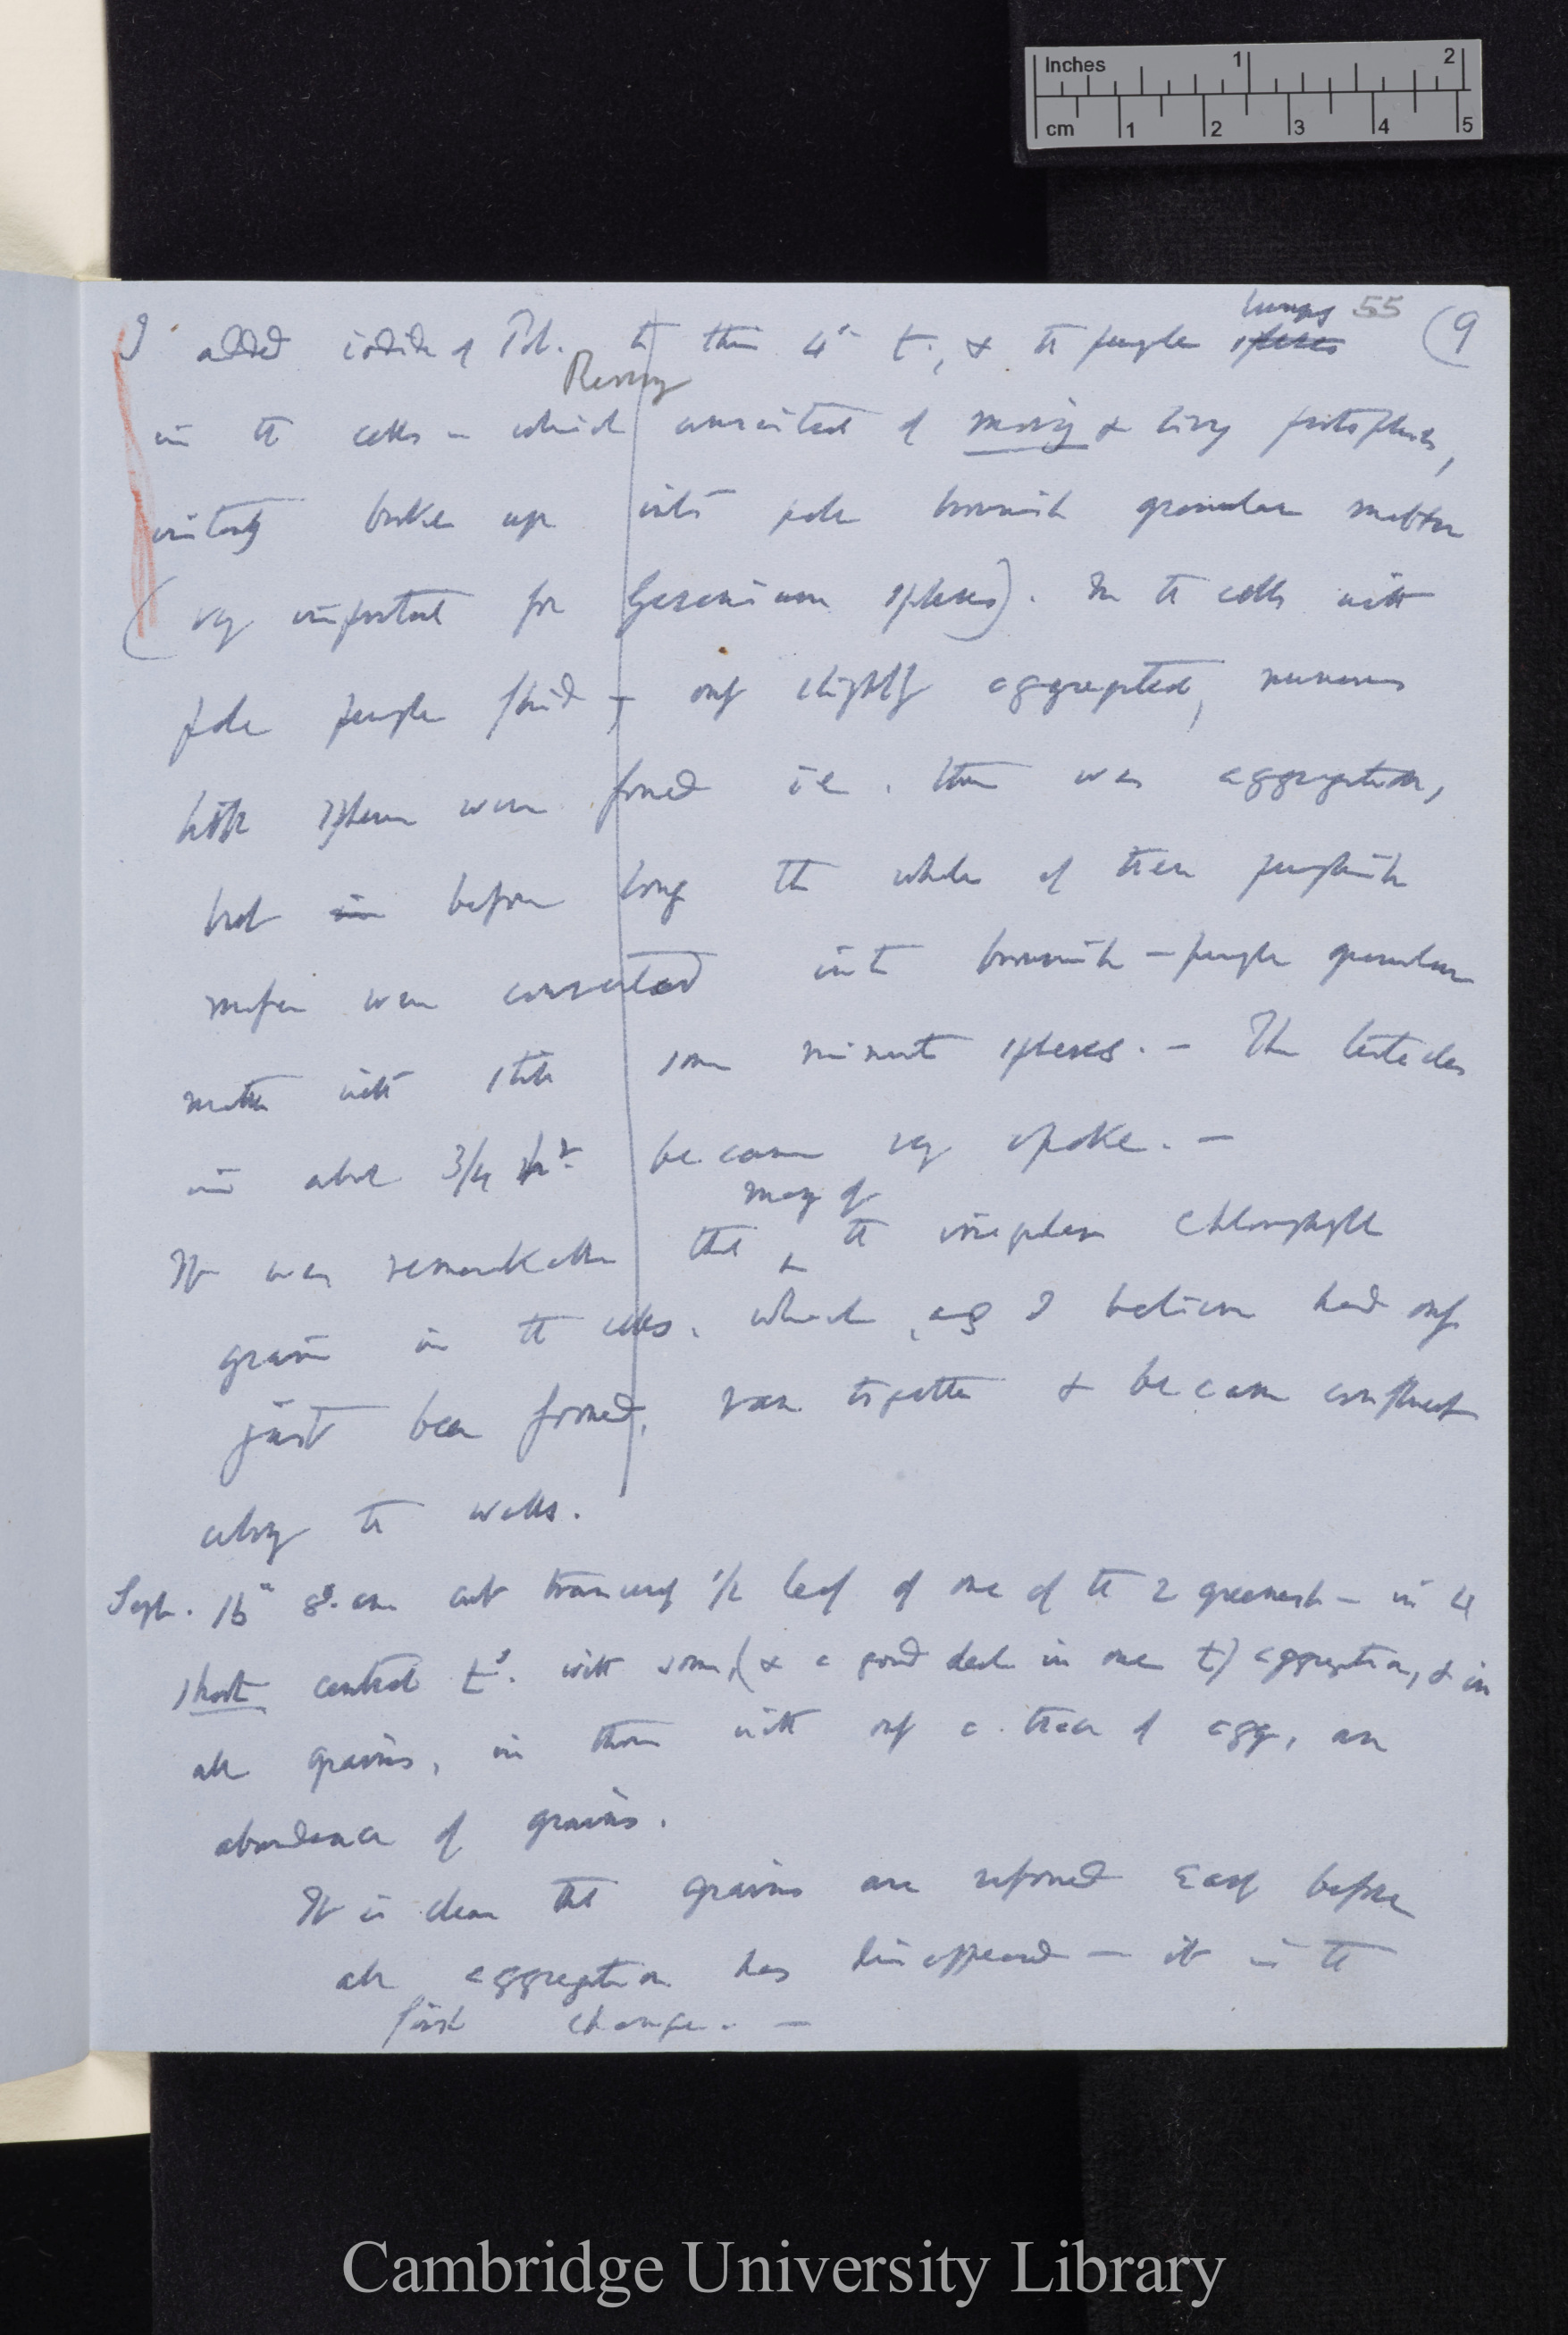 Inches 1 2
cm 1 2 3 4 5
55 (9
lumps
I added iodide of Pot. to this 4th t., & the purple spheres
Remy
in the cells – which consisted of moving & living protoplasm,
instantly broke up into pale brownish granular matter
(very important for Geranium spheres). In the cells with
pale purple fluid – only slightly aggregated, numerous
little spheres were formed i.e. there was aggregation,
but in before long the whole of these purplish
were converted into brownish-purple granular
matter with still some minute spheres. – The tentacles
in about 3/4 hr. became very opake. –
many of
It was remarkable that ^ the chlorophyll
grains in the cells, which, as I believe had only
just been formed, ran together & became confluent
along the walls.
Sept. 16th 8°. am cut transversely 1/2 leaf of one of the 2 greenest – in 4
short central ts. with some (& a good deal in one t) aggregation, & in
all grains, in those with only a trace of agg, an
abundance of grains.
It is clear that grains are reformed early before
all aggregation has disappeared – it is the
first change. –
Cambridge University Library